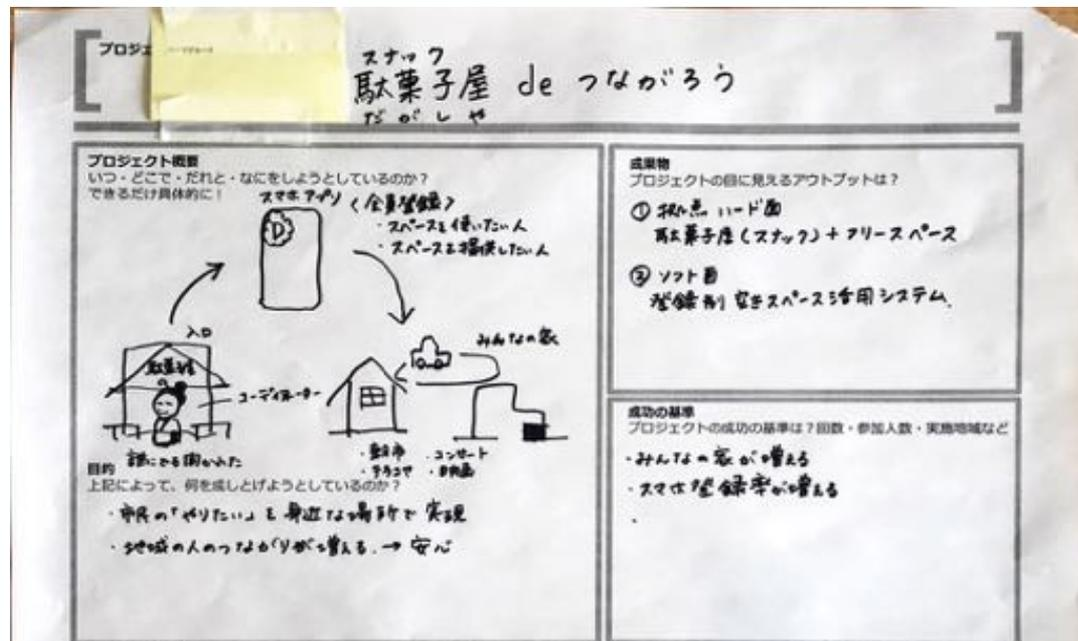 プロジェ
スナック
駄菓子屋 de つながろう
だがしや
プロジェクト概要
いつ・どこで・だれと・なにをしようとしているのか?
できるだけ具体的に!
スマホアプリ(会員登録)
・スペースを使いたい人
・スペースを提供したい人
D
入口
駄菓子屋
の
コーディネーター
誰にでも開かれた
みんなの家
・コンサート
・テラコヤ
・映画
目的
上記によって、何を成しとげようとしているのか?
・市民の「やりたい」を身近な場所で実現
・地域の人のつながりが増える → 安心
成果物
プロジェクトの目に見えるアウトプットは?
① 拠点 ハード面
駄菓子屋(スナック)+フリースペース
② ソフト面
登録制 空きスペース活用システム
成功の基準
プロジェクトの成功の基準は?回数・参加人数・実施地域など
・みんなの家が増える
・スマホ登録率が増える
・